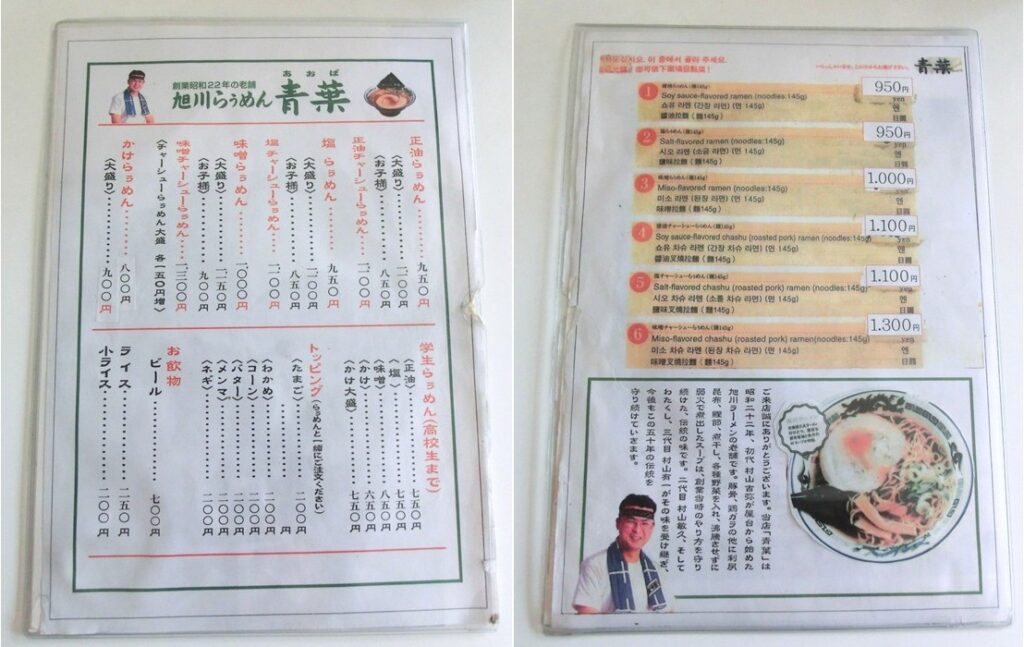 創業昭和22年の老舗
旭川らぅめん
あおば
青葉
正油らぅめん………九五〇円
〈大盛り〉………一一〇〇円
〈お子様〉………八五〇円
正油チャーシューらぅめん…一一〇〇円
塩らぅめん………九五〇円
〈大盛り〉………一一〇〇円
〈お子様〉………八五〇円
塩チャーシューらぅめん…一一〇〇円
味噌らぅめん………一〇〇〇円
〈大盛り〉………一一五〇円
〈お子様〉………九〇〇円
味噌チャーシューらぅめん…一三〇〇円
〈チャーシューらぅめん大盛 各一五〇円増〉
かけらぅめん………八〇〇円
〈大盛り〉………九〇〇円
学生らぅめん(高校生まで)
〈正油〉………七五〇円
〈塩〉………七五〇円
〈味噌〉………八〇〇円
〈かけ〉………六五〇円
〈かけ大盛〉………七五〇円
トッピング(らぅめんと一緒にご注文ください)
〈たまご〉………円
〈わかめ〉………二〇〇円
〈コーン〉………一〇〇円
〈バター〉………一〇〇円
〈メンマ〉………二〇〇円
〈ネギ〉………一〇〇円
お飲物
ビール………七〇〇円
ライス………一五〇円
小ライス………一〇〇円
이 중에서 골라 주세요.
いらっしゃいませ。
青葉
1 醤油らぅめん(麺145g)
950円
Soy sauce-flavored ramen (noodles:145g)
yen
쇼유 라멘 (간장 라면) (면 145g)
엔
醬油拉麵 (麵145g)
日圓
2 塩らぅめん(麺145g)
950円
Salt-flavored ramen (noodles:145g)
yen
시오 라멘 (소금 라면) (면 145g)
엔
鹽味拉麵 (麵145g)
日圓
3 味噌らぅめん(麺145g)
1.000円
Miso-flavored ramen (noodles:145g)
yen
미소 라멘 (된장 라면) (면 145g)
엔
味噌拉麵 (麵145g)
日圓
4 醤油チャーシューらぅめん(麺145g)
1.100円
Soy sauce-flavored chashu (roasted pork) ramen (noodles:145g)
yen
쇼유 차슈 라멘 (간장 차슈 라면) (면 145g)
엔
醬油叉燒拉麵 (麵145g)
日圓
5 塩チャーシューらぅめん(麺145g)
1.100円
Salt-flavored chashu (roasted pork) ramen (noodles:145g)
yen
시오 차슈 라멘 (소금 차슈 라면) (면 145g)
엔
鹽味叉燒拉麵 (麵145g)
日圓
6 味噌チャーシューらぅめん(麺145g)
1.300円
Miso-flavored chashu (roasted pork) ramen(noodles:145g)
yen
미소 차슈 라멘 (된장 차슈 라면) (면 145g)
엔
味噌叉燒拉麵 (麵145g)
日圓
ご来店誠にありがとうございます。当店「青葉」は
昭和二十二年、初代 村山吉弥が屋台から始めた
旭川ラーメンの老舗です。豚骨、鶏ガラの他に利尻
昆布、鰹節、煮干し、各種野菜を入れ、沸騰させずに
弱火で煮出したスープは、創業当時のやり方を守り
続けた、伝統の味です。二代目 村山敏久、そして
わたくし、三代目 村山有一がその味を受け継ぎ、
今後もこの五十年の伝統を
守り続けていきます。